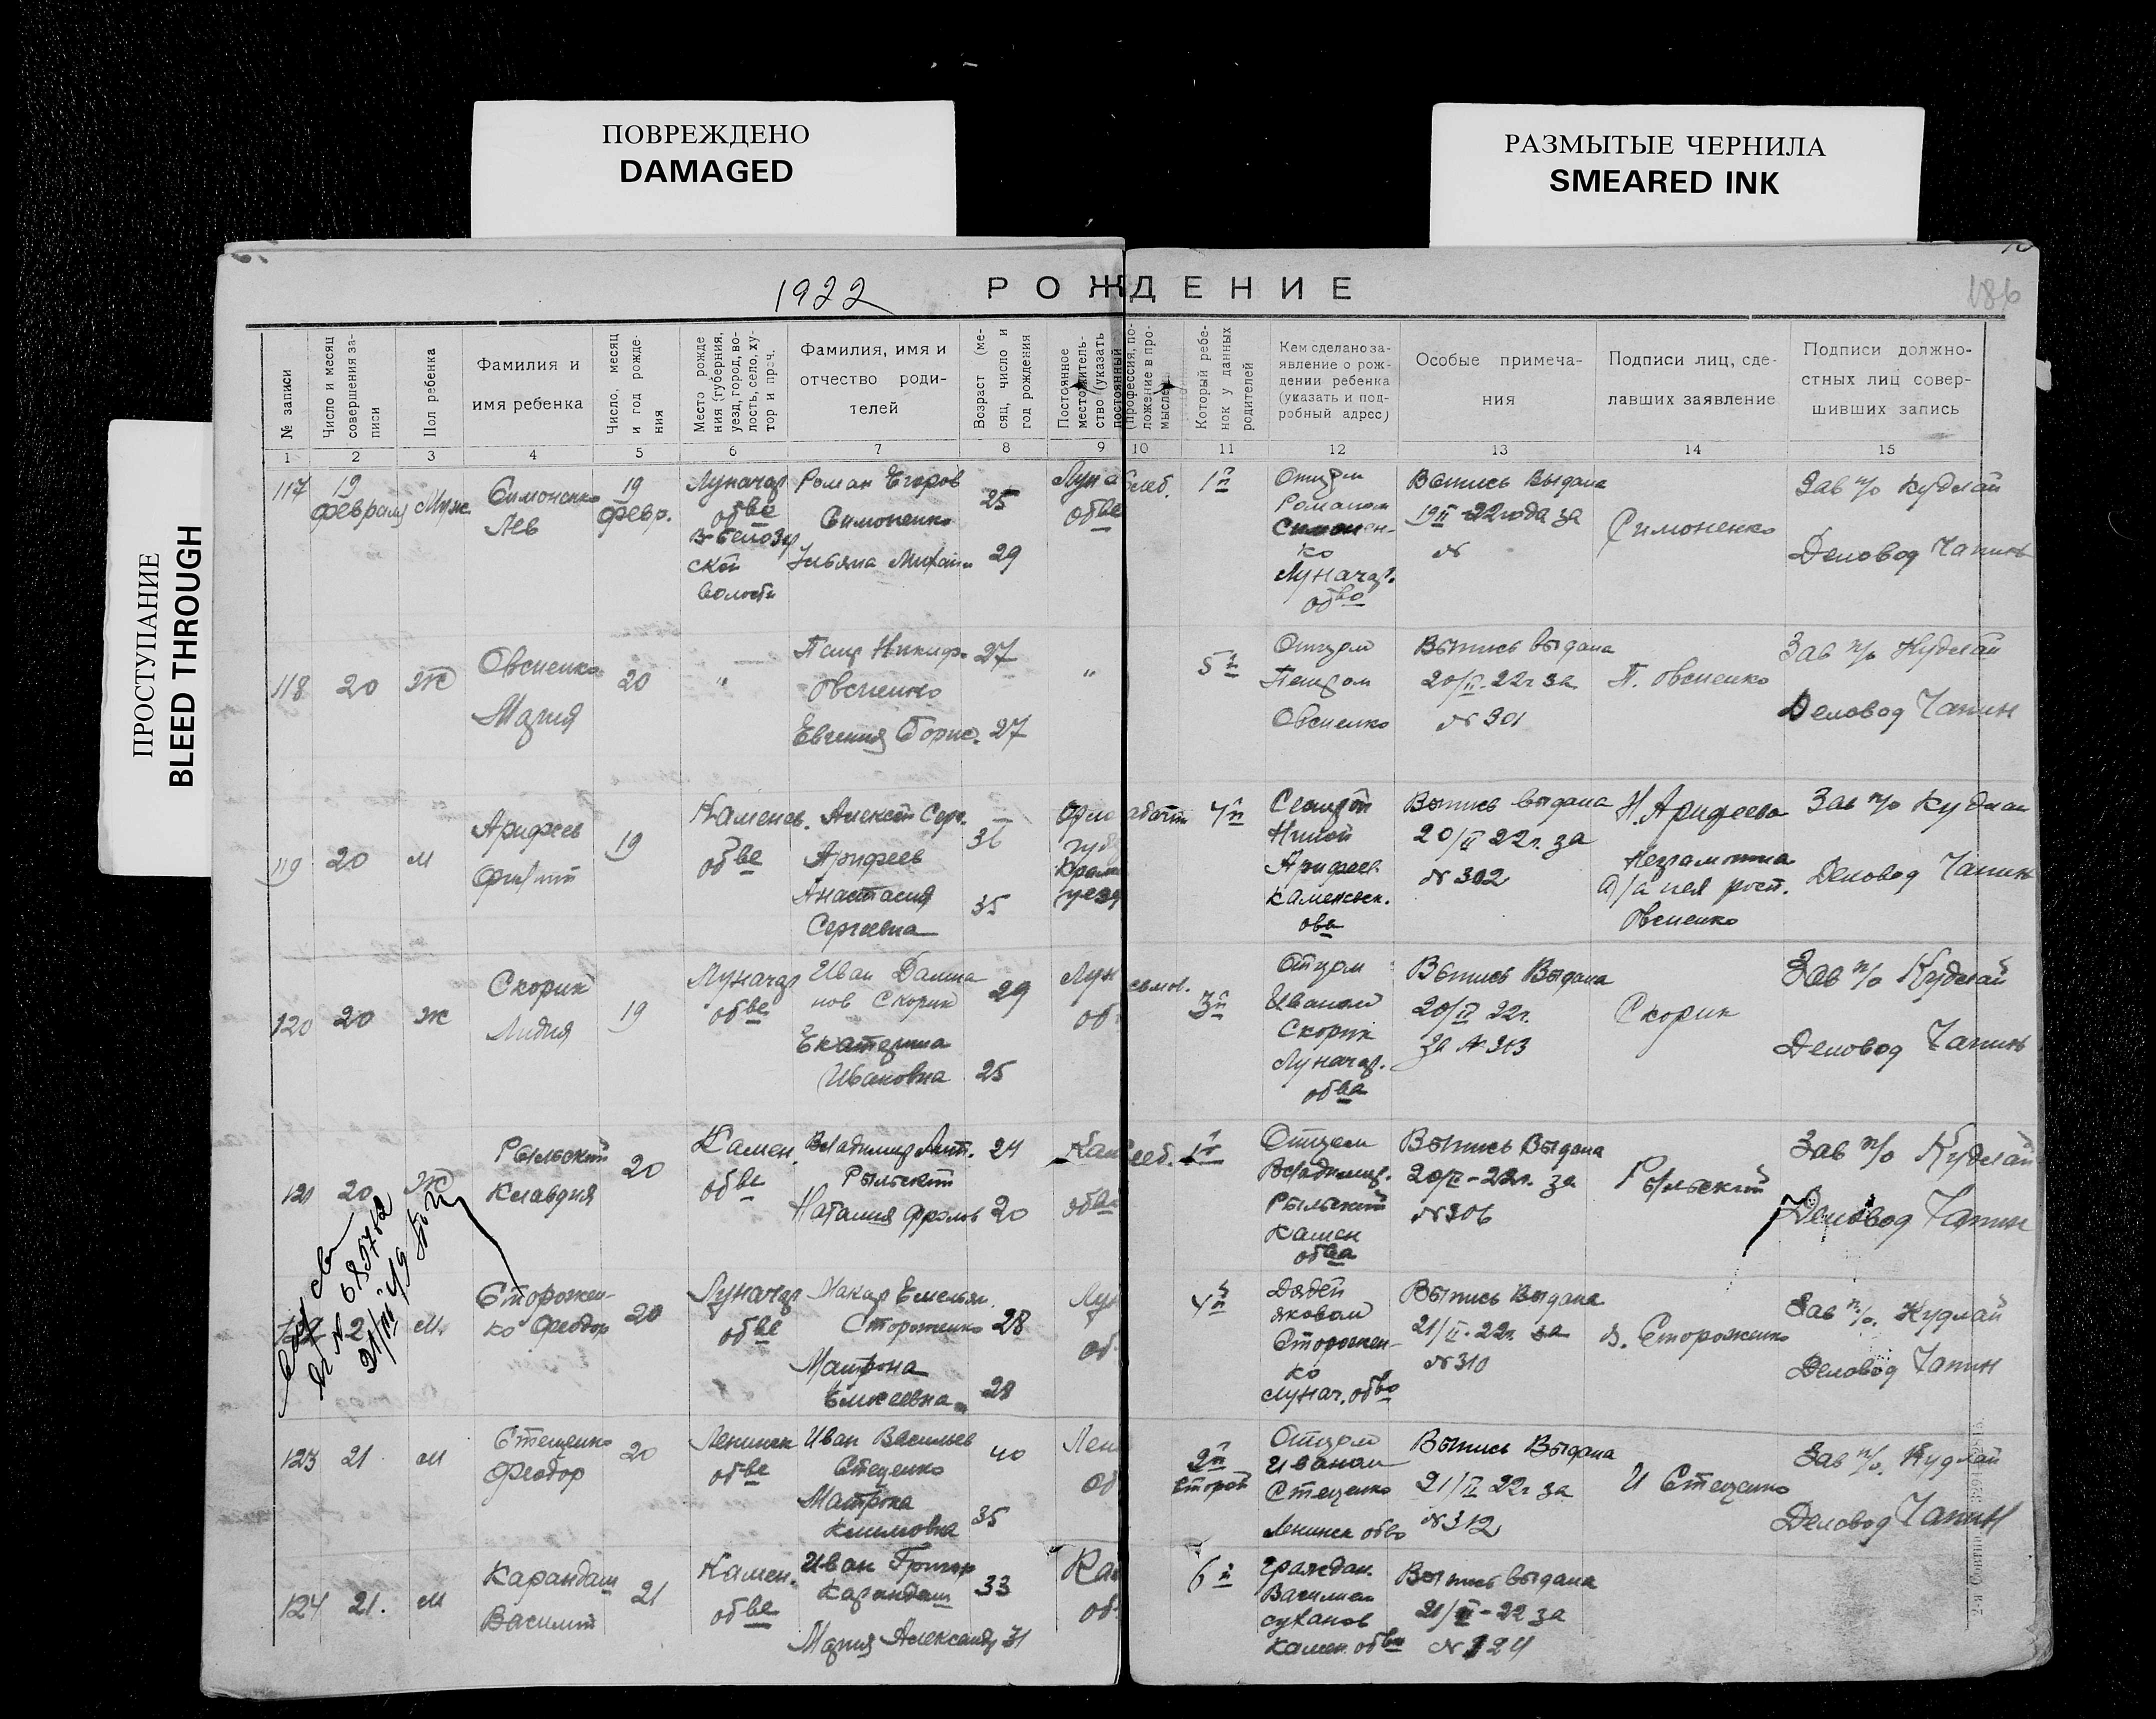 ПОВРЕЖДЕНО
DAMAGED
РАЗМЫТЫЕ ЧЕРНИЛА
SMEARED INK
ПРОСТУПАНИЕ
BLEED THROUGH
1922
РОЖДЕНИЕ
186
№ записи
Число и месяц
совершения за-
писи
Пол ребенка
Фамилия и
имя ребенка
Число, месяц
и год рожде-
ния
Место рожде
ния (губерния,
уезд, город, во-
лость, село, ху-
тор и проч.
Фамилия, имя и
отчество роди-
телей
Возраст (ме-
сяц, число и
год рождения
Постоянное
местожитель-
ство (указать
постоянный
(профессия, по-
ложение в про-
мысле
Который ребе-
нок у данных
родителей
Кем сделано за-
явление о рож-
дении ребенка
(указать и под-
робный адрес)
Особые примеча-
ния
Подписи лиц, сде-
лавших заявление
Подписи должно-
стных лиц совер-
шивших запись
1 2 3 4 5 6 7 8 9 10 11 12 13 14 15
117
19
февраля
Муж.
Симоненко
Лев
19
февр.
Луначар
обве
волости
Роман Егоров
Симоненко
25
29
обве
1й
Отцом
Романом
Симонен-
ко
Луначар.
обво
Вопись Выдана
19 II - 22 года за
№
Симоненко
Зав п/о Кудлай
Деловод Чапин
118
20
Ж
Овсиенко
Мария
20
"
Петр Никиф.
Овсиенко
Евгения Борис.
27
27
"
5й
Отцом
Петром
Овсиенко
Выпись выдана
20/II. 22г. за
№ 301
П. Овсиенко
Зав п/о Кудлай
Деловод Чапин
119
20
М
19
Каменев.
обве
Алексей Серг.
Анастасия
Сергеевна
36
35
4й
Выпись выдана
20/II 22г. за
№ 302
Неграмотна
Овсиенко
Зав п/о Кудлай
Деловод Чапин
120
20
Ж
Скорик
Лидия
19
Луначар
обве
Иван Дамиа
нов Скорик
Екатерина
Ивановна
29
25
Лун
об
3й
Отцом
Иваном
Скорик
Луначар.
обва
Выпись Выдана
20/II 22г.
за № 303
Скорик
Зав п/о Кудлай
Деловод Чапин
121
20
Ж
Рыльский
Клавдия
20
Камен.
обве
Владимир Ант.
Рыльский
Наталия Фролов
24
20
Кам
обве
1й
Отцом
Владимир.
Рыльский
Камен
обва
Выпись Выдана
20/II - 22г. за
№ 306
Рыльский
Зав п/о Кудлай
Деловод Чапин
122
2
М.
Сторожен-
ко Феодор
20
Луначар
обве
Макар Емельян.
Стороженко
Матрона
Елисеевна
28
28
Лун
об
4й
Дядей
Яковом
Сторожен-
ко
Лунач. обво
Выпись Выдана
21/II - 22г. за
№ 310
Я. Стороженко
Зав п/о. Кудлай
Деловод Чапин
123
21
М
Стеценко
Феодор
20
Ленинск
обве
Иван Васильев
Стеценко
Матрона
Климовна
40
35
Лен
об
2й
второй
Отцом
Иваном
Стеценко
Ленинск обво
Выпись Выдана
21/II 22г за
№ 312
И Стеценко
Зав п/о. Кудлай
Деловод Чапин
124
21.
М
Карандаш
Василий
21
Камен.
обве
Иван Григор
Карандаш
Мария Александр
33
31
Кам
об
6й
Граждан.
Василием
Суханов
Камен. обва
Выпись выдана
21/II - 22 за
№ 124